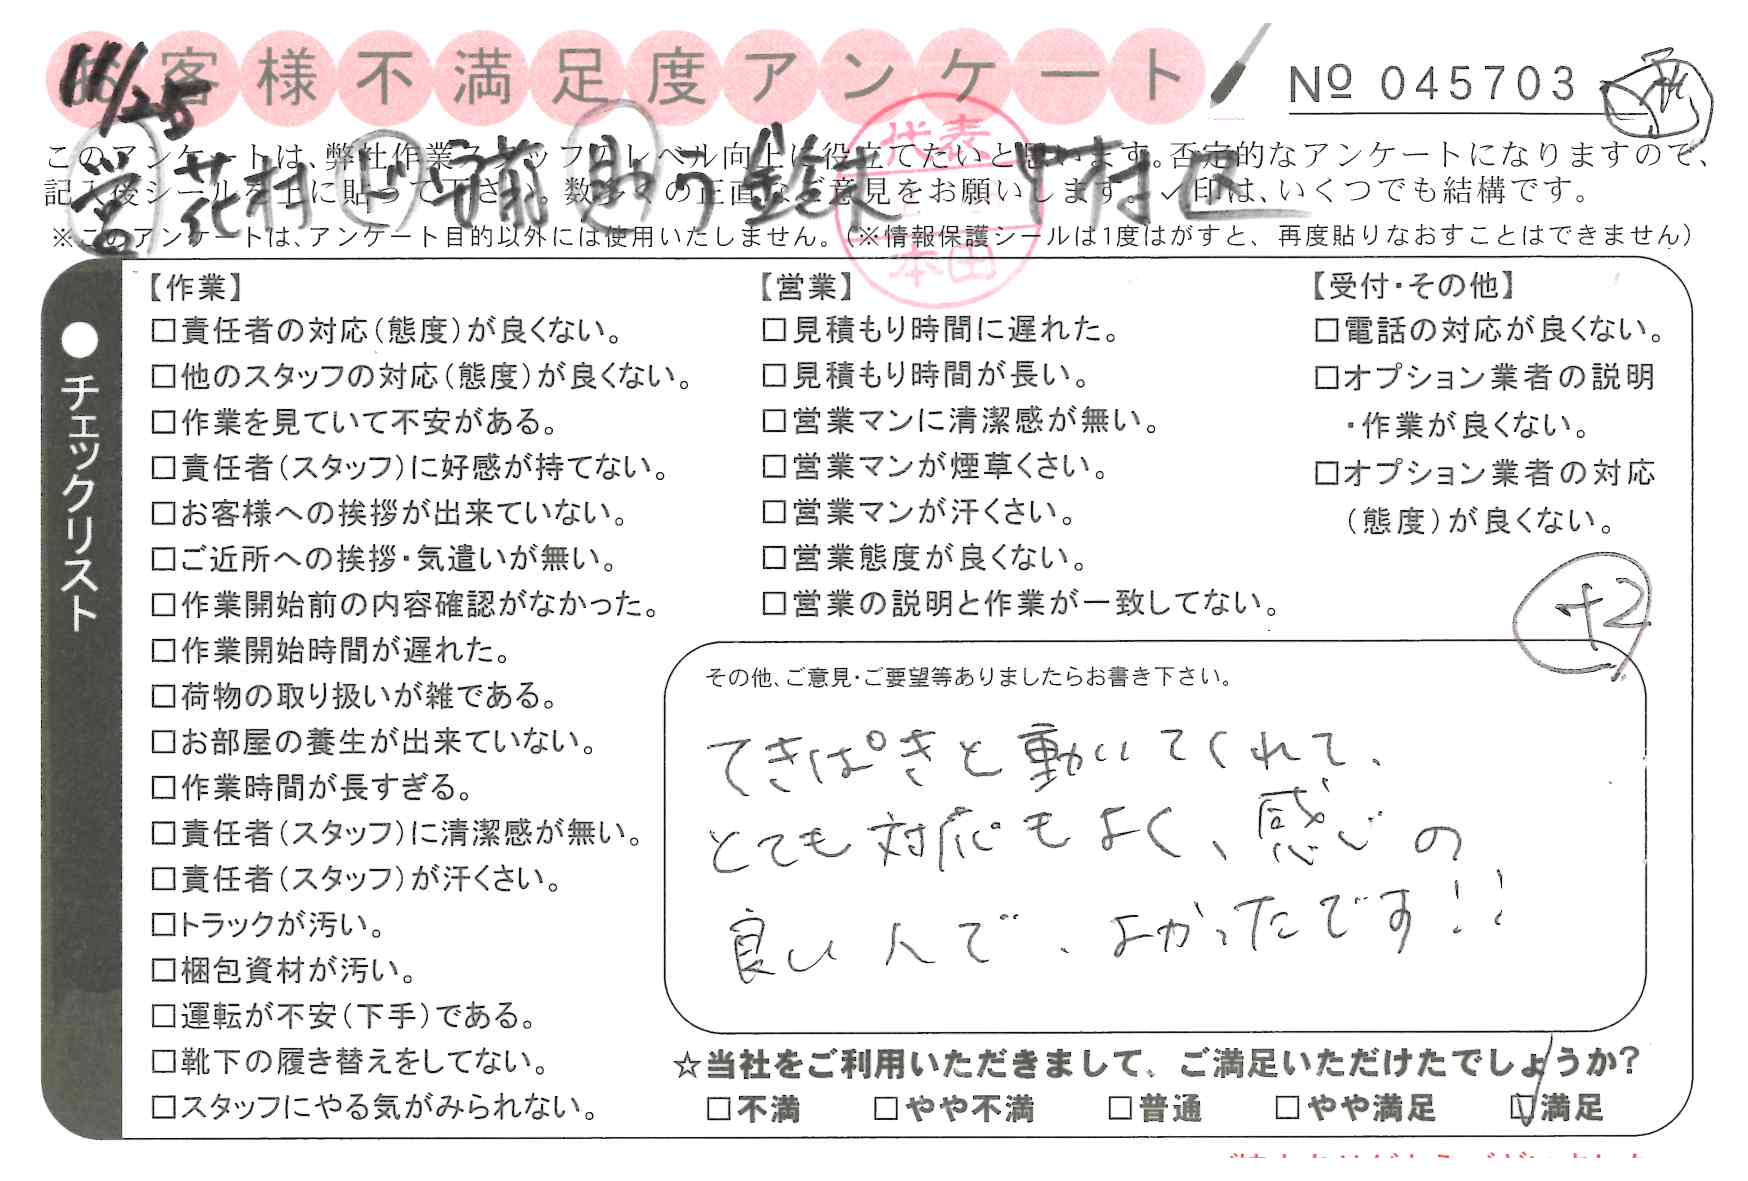 お客様不満足度アンケート
11/25
Nº 045703
このアンケートは、弊社作業スタッフのレベル向上に役立てたいと思います。否定的なアンケートになりますので、
記入後シールを上に貼って下さい。数多くの正直なご意見をお願いします。✓印は、いくつでも結構です。
※このアンケートは、アンケート目的以外には使用いたしません。(※情報保護シールは1度はがすと、再度貼りなおすことはできません)
代表
本田
●チェックリスト
【作業】
□責任者の対応(態度)が良くない。
□他のスタッフの対応(態度)が良くない。
□作業を見ていて不安がある。
□責任者(スタッフ)に好感が持てない。
□お客様への挨拶が出来ていない。
□ご近所への挨拶・気遣いが無い。
□作業開始前の内容確認がなかった。
□作業開始時間が遅れた。
□荷物の取り扱いが雑である。
□お部屋の養生が出来ていない。
□作業時間が長すぎる。
□責任者(スタッフ)に清潔感が無い。
□責任者(スタッフ)が汗くさい。
□トラックが汚い。
□梱包資材が汚い。
□運転が不安(下手)である。
□靴下の履き替えをしてない。
□スタッフにやる気がみられない。
【営業】
□見積もり時間に遅れた。
□見積もり時間が長い。
□営業マンに清潔感が無い。
□営業マンが煙草くさい。
□営業マンが汗くさい。
□営業態度が良くない。
□営業の説明と作業が一致してない。
【受付・その他】
□電話の対応が良くない。
□オプション業者の説明
・作業が良くない。
□オプション業者の対応
(態度)が良くない。
+2
その他、ご意見・ご要望等ありましたらお書き下さい。
てきぱきと動いてくれて、
とても対応もよく、感じの
良い人で、よかったです!!
☆当社をご利用いただきまして、ご満足いただけたでしょうか?
□不満 □やや不満 □普通 □やや満足 ☑満足